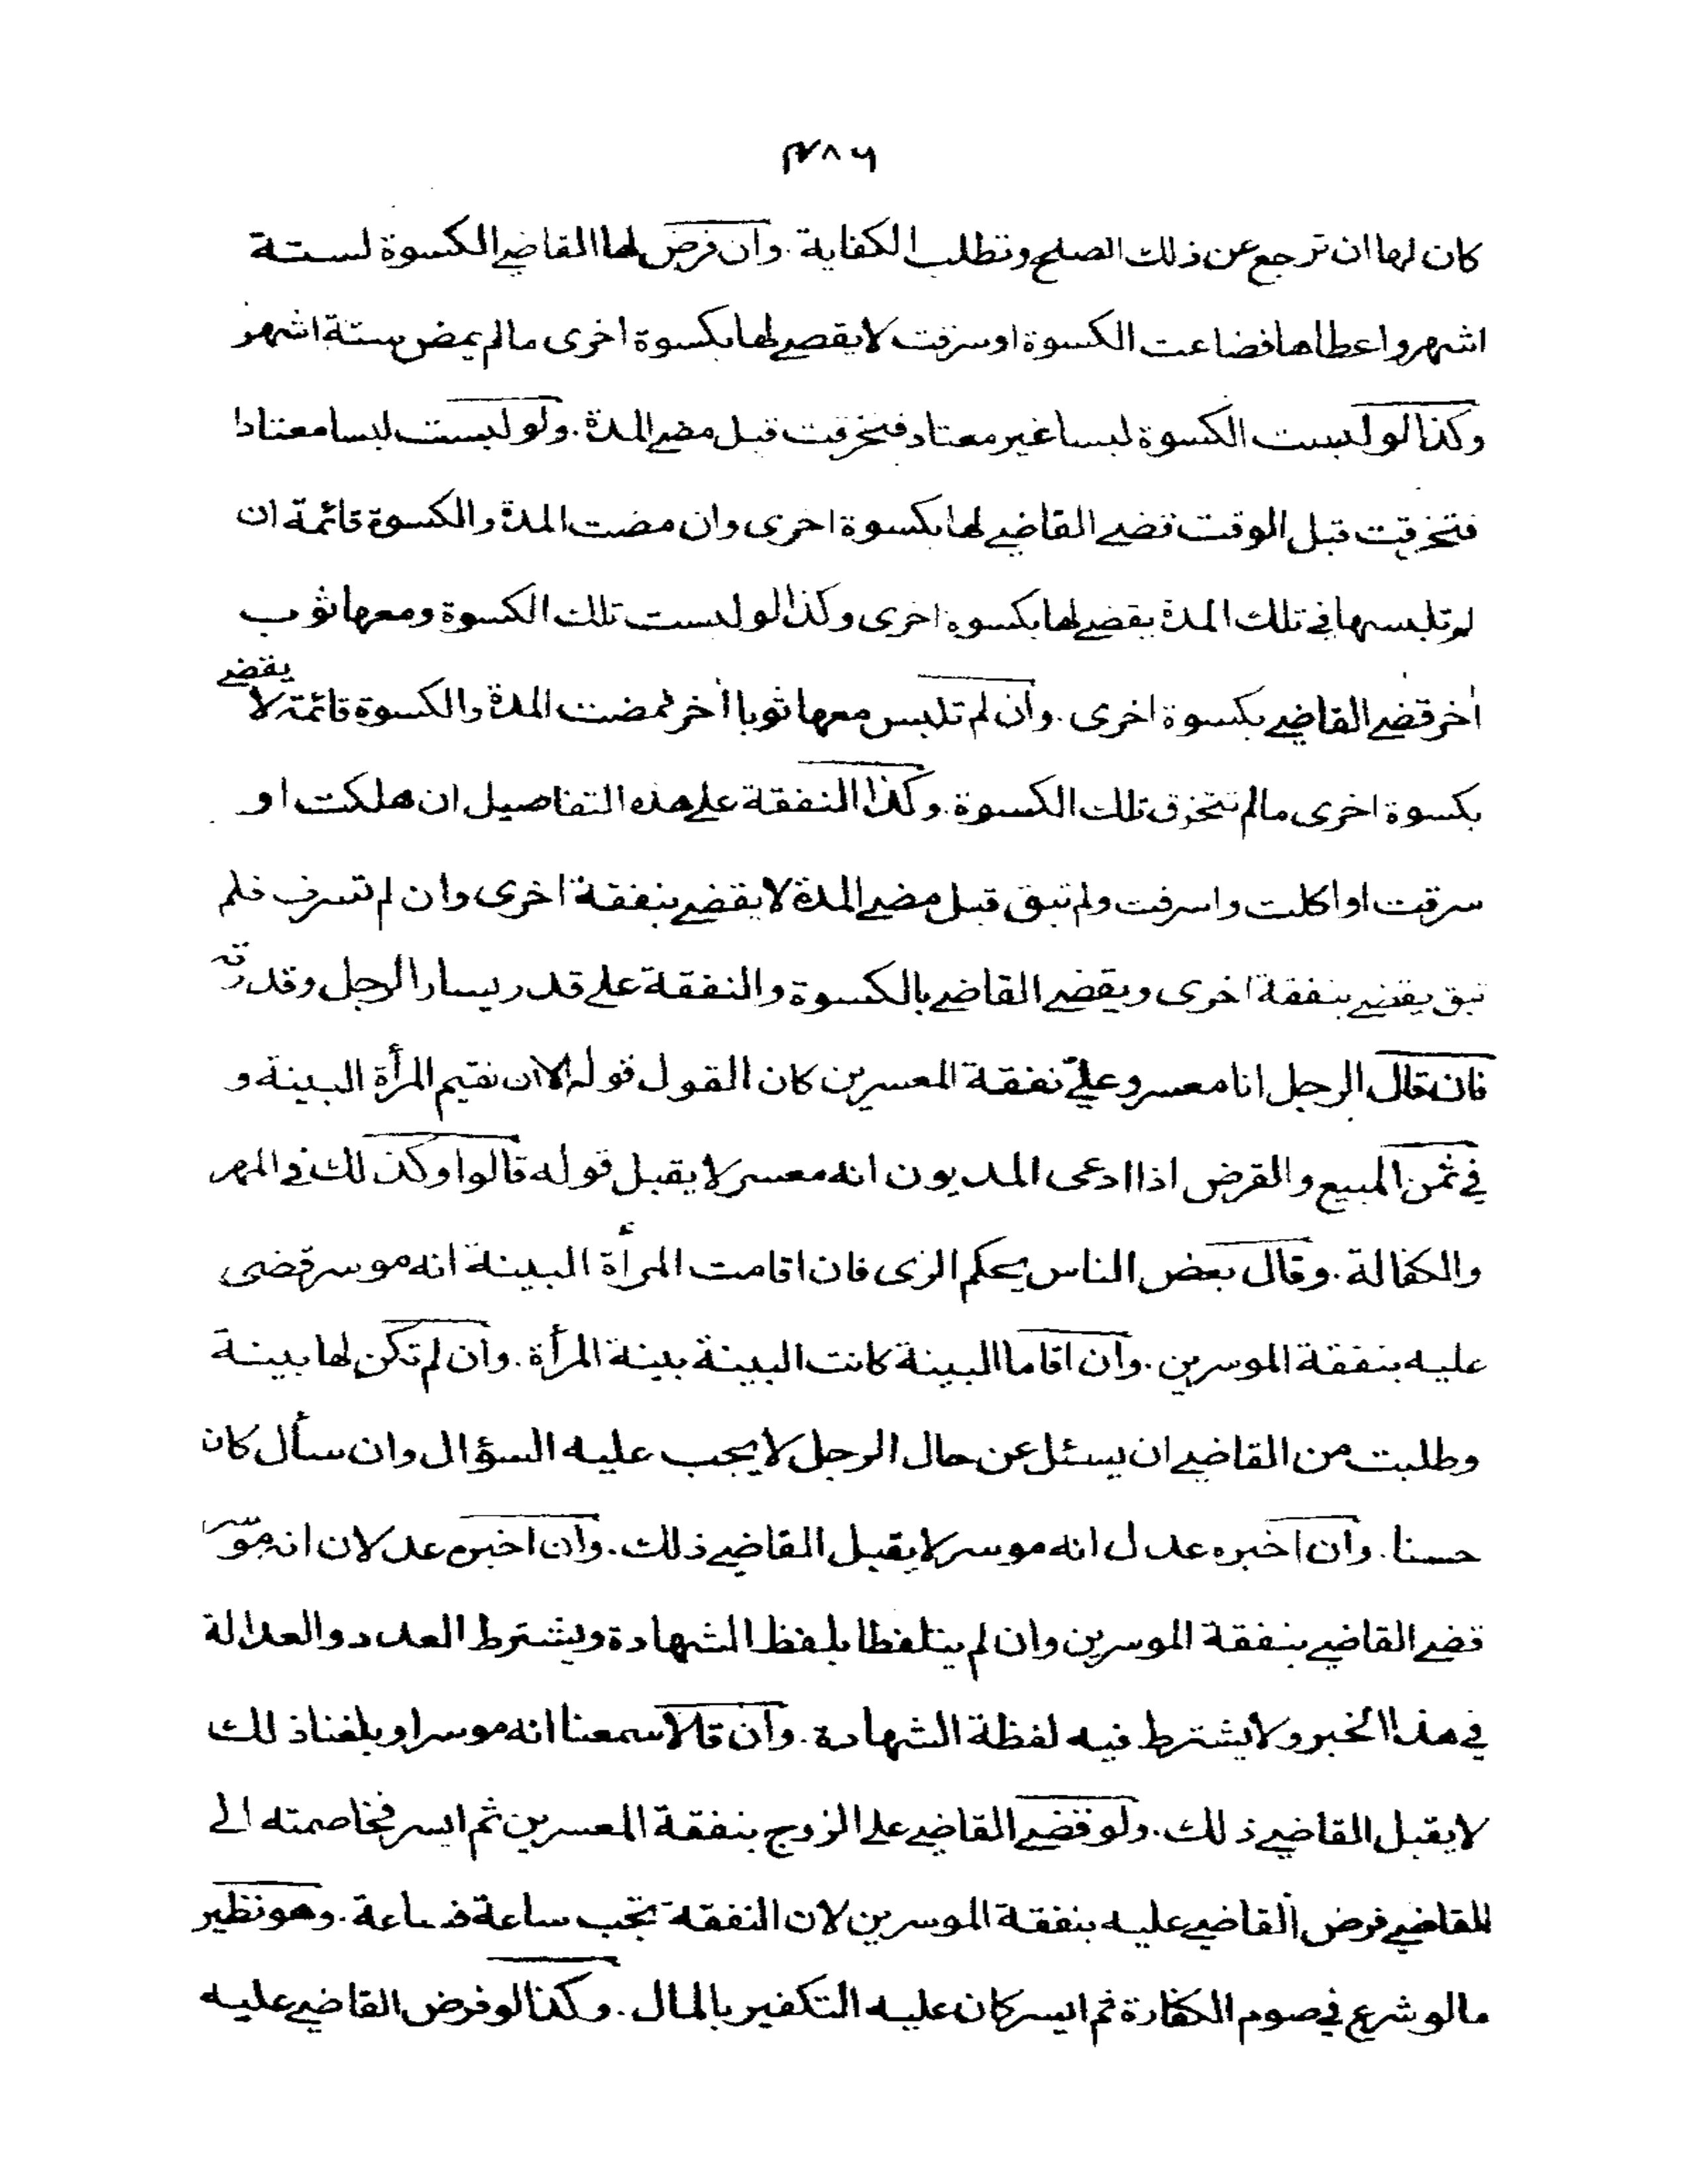 ۳۸۶
كان لها ان ترجع عن ذلك الصلح وتطلب الكفاية . وان فرض لها القاضي الكسوة لستة
اشهر واعطاها فضاعت الكسوة او سرقت لا يقضي لها بكسوة اخرى مالم يمض ستة اشهر
وكذا لو لبست الكسوة لبسا غير معتاد فتخرقت قبل مضي المدة . ولو لبست لبسا معتادا
فتخرقت قبل الوقت قضي القاضي لها بكسوة اخرى وان مضت المدة والكسوة قائمة ان
لم تلبسها في تلك المدة يقضي لها بكسوة اخرى وكذا لو لبست تلك الكسوة ومعها ثوب
أخر قضي القاضي بكسوة اخرى . وان لم تلبس معها ثوبا أخر فمضت المدة والكسوة قائمة لا يقضي
بكسوة اخرى مالم تتخرق تلك الكسوة . وكذا النفقة علي هذه التفاصيل ان هلكت او
سرقت او اكلت واسرفت ولم تبق قبل مضي المدة لا يقضي بنفقة اخرى وان لم تسرف فلم
تبق يقضي بنفقة اخرى ويقضي القاضي بالكسوة والنفقة علي قدر يسار الرجل وقدرته
فان قال الرجل انا معسر وعليّ نفقة المعسرين كان القول قوله الا ان تقيم المرأة البينة و
في ثمن المبيع والقرض اذا ادعى المديون انه معسر لا يقبل قوله قالوا وكذلك في المهر
والكفالة . وقال بعض الناس يحكم الزى فان اقامت المرأة البينة انه موسر قضى
عليه بنفقة الموسرين . وان اقاما البينة كانت البينة بينة المرأة . وان لم تكن لها بينة
وطلبت من القاضي ان يسئل عن حال الرجل لا يجب عليه السؤال وان سأل كان
حسنا . وان اخبره عدل انه موسر لا يقبل القاضي ذلك . وان اخبره عدلان انه موسر
قضي القاضي بنفقة الموسرين وان لم يتلفظا بلفظ الشهادة ويشترط العدد والعدالة
في هذا الخبر ولا يشترط فيه لفظة الشهادة . وان قالا سمعنا انه موسر او بلغنا ذلك
لا يقبل القاضي ذلك . ولو قضي القاضي علي الزوج بنفقة المعسرين ثم ايسر فخاصمته الي
القاضي فرض القاضي عليه بنفقة الموسرين لان النفقة تجب ساعة فساعة . وهو نظير
مالو شرع في صوم الكفارة ثم ايسر كان عليه التكفير بالمال . وكذا لو فرض القاضي عليه